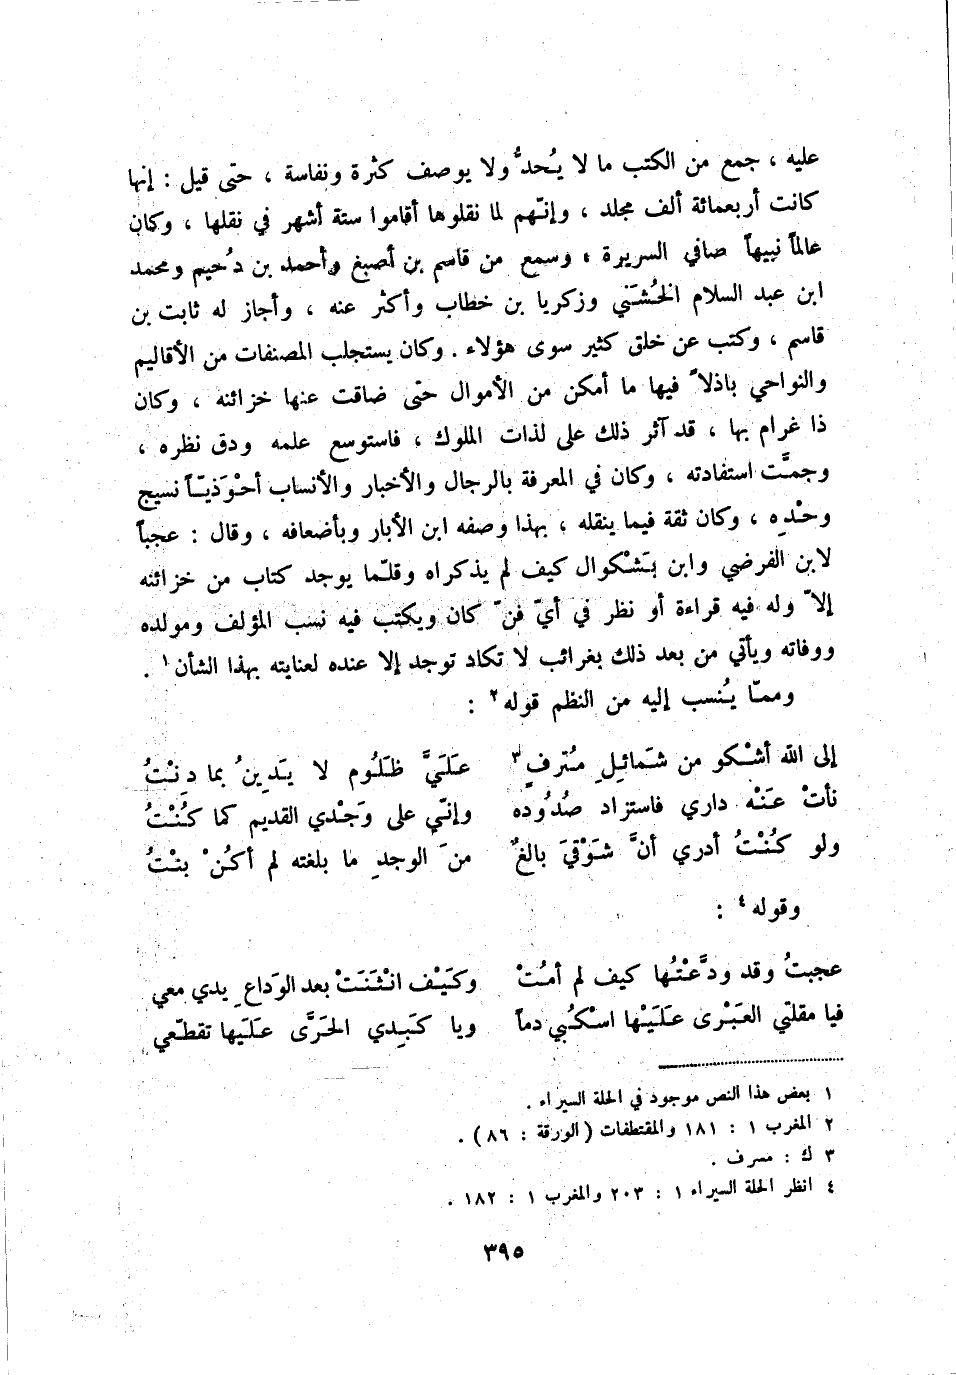 عليه ، جمع من الكتب ما لا يُحدُّ ولا يوصف كثرة ونفاسة ، حتى قيل : إنها
كانت أربعمائة ألف مجلد ، وإنّهم لما نقلوها أقاموا ستة أشهر في نقلها ، وكان
عالماً نبيهاً صافي السريرة ، وسمع من قاسم بن أصبغ وأحمد بن دُحيم ومحمد
ابن عبد السلام الخُشَني وزكريا بن خطاب وأكثر عنه ، وأجاز له ثابت بن
قاسم ، وكتب عن خلق كثير سوى هؤلاء . وكان يستجلب المصنفات من الأقاليم
والنواحي باذلاً فيها ما أمكن من الأموال حتى ضاقت عنها خزائنه ، وكان
ذا غرام بها ، قد آثر ذلك على لذات الملوك ، فاستوسع علمه ودق نظره ،
وجمَّت استفادته ، وكان في المعرفة بالرجال والأخبار والأنساب أحْوَذيّاً نسيج
وحْدِه ، وكان ثقة فيما ينقله ، بهذا وصفه ابن الأبار وبأضعافه ، وقال : عجباً
لابن الفرضي وابن بَشْكوال كيف لم يذكراه وقلّما يوجد كتاب من خزائنه
إلاّ وله فيه قراءة أو نظر في أيّ فنّ كان ويكتب فيه نسب المؤلف ومولده
ووفاته ويأتي من بعد ذلك بغرائب لا تكاد توجد إلا عنده لعنايته بهذا الشأن ١ .
وممّا يُنسب إليه من النظم قوله ٢ :
إلى الله أشْكو من شَمائلِ مُترفٍ ٣ عَلَيَّ ظَلُوم لا يَدِينُ بما دِنْتُ
نأتْ عَنْه داري فاستزاد صُدُوده وإنّي على وَجْدي القديم كما كُنْتُ
ولو كُنْتُ أدري أنَّ شَوْقيَ بالغٌ منَ الوجدِ ما بلغته لم أكُنْ بنْتُ
وقوله ٤ :
عجبتُ وقد ودَّعْتُها كيف لم أمُتْ وكَيْف انْثَنَتْ بعد الوَداعِ يدي معي
فيا مقلتي العَبْرى عَلَيْها اسْكُبي دماً ويا كَبِدي الحَرَّى عَلَيها تقطّعي
١ بعض هذا النص موجود في الحلة السيراء .
٢ المغرب ١ : ١٨١ والمقتطفات ( الورقة : ٨٦ ) .
٣ ك : مسرف .
٤ انظر الحلة السيراء ١ : ٢٠٣ والمغرب ١ : ١٨٢ .
٣٩٥